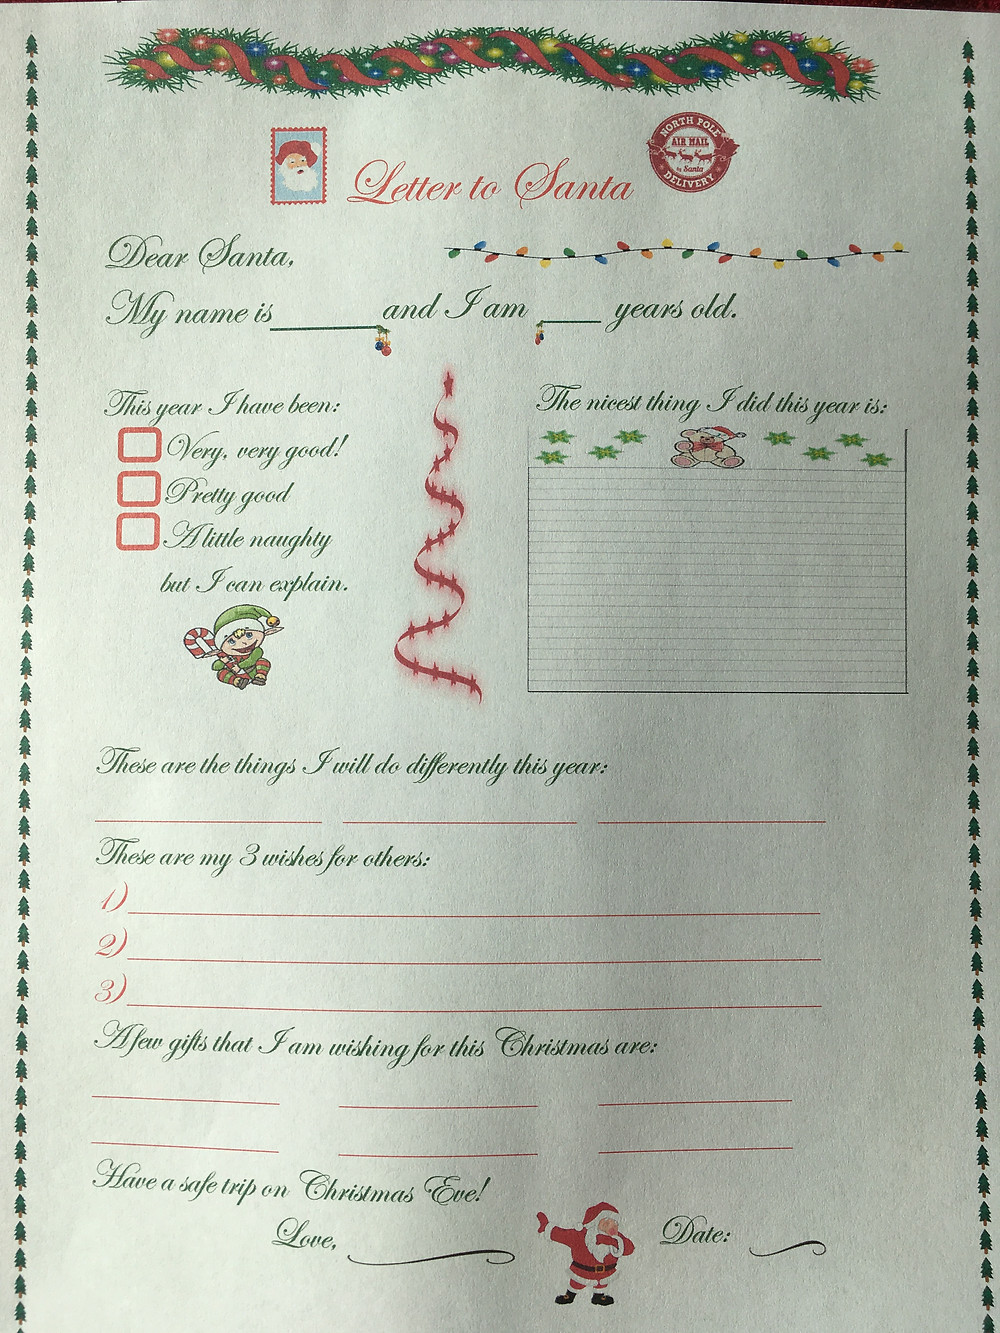 NORTH POLE
AIR MAIL
by Santa
DELIVERY
Letter to Santa
Dear Santa,
My name is and I am years old.
This year I have been:
Very, very good!
Pretty good
A little naughty
but I can explain.
The nicest thing I did this year is:
These are the things I will do differently this year:
These are my 3 wishes for others:
1)
2)
3)
A few gifts that I am wishing for this Christmas are:
Have a safe trip on Christmas Eve!
Love,
Date: